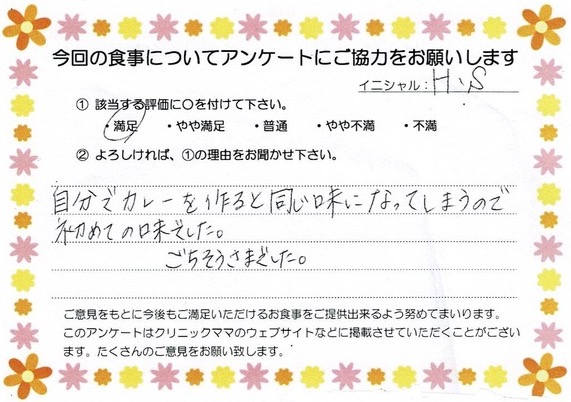 今回の食事についてアンケートにご協力をお願いします
イニシャル：H・S
① 該当する評価に○を付けて下さい。
・満足 ・やや満足 ・普通 ・やや不満 ・不満
② よろしければ、①の理由をお聞かせ下さい。
自分でカレーを作ると同じ味になってしまうので
初めての味でした。
ごちそうさまでした。
ご意見をもとに今後もご満足いただけるお食事をご提供出来るよう努めてまいります。
このアンケートはクリニックママのウェブサイトなどに掲載させていただくことがござい
ます。たくさんのご意見をお願い致します。